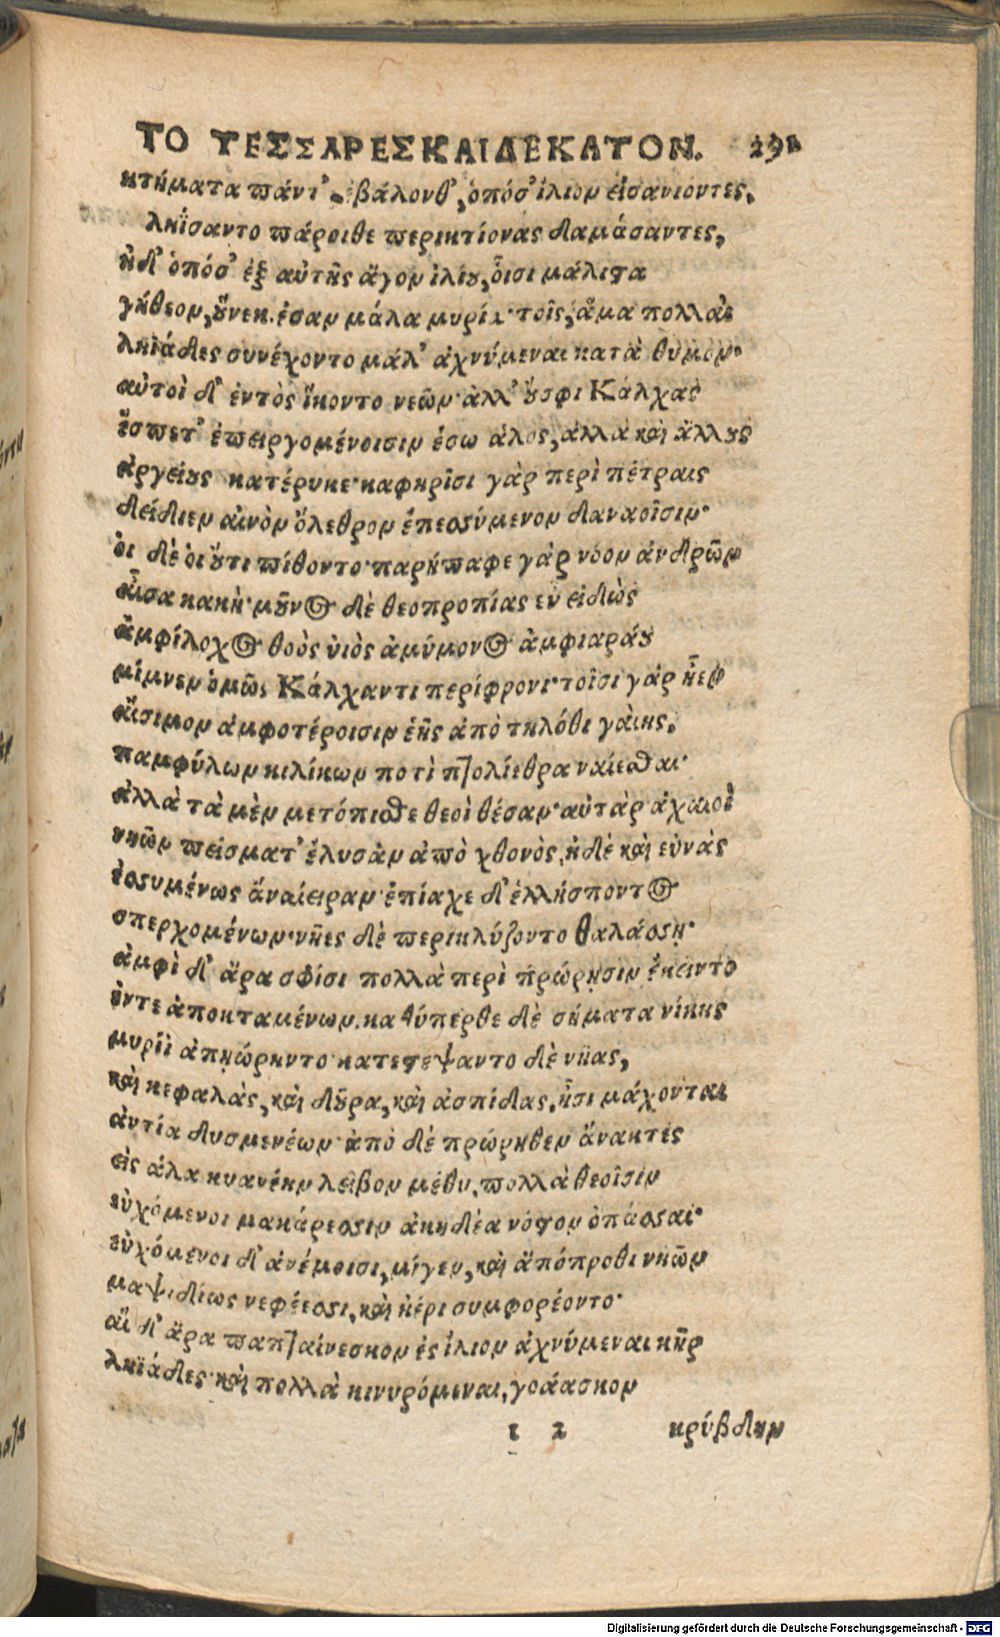 ΤΟ ΤΕΣΣΑΡΕΣΚΑΙΔΕΚΑΤΟΝ. 291
κτήματα πάντ' βάλονθ', ὁπόσ' ἴλιον εἰσανιόντες,
ληΐσαντο πάροιθε περικτίονας δαμάσαντες,
ἠδ' ὁπόσ' ἐξ αὐτῆς ἄγον ἰλίου, οἷσι μάλιστα
γήθεον, οὕνεκ. ἔσαν μάλα μυρία· τοῖς, ἅμα πολλαὶ
ληϊάδες συνέχοντο μάλ' ἀχνύμεναι κατὰ θυμόν·
αὐτοὶ δ' ἐντὸς ἵκοντο νεῶν· ἀλλ' οὔσφι Κάλχας
ἕσπετ' ἐπειγομένοισιν ἔσω ἁλός, ἀλλὰ καὶ ἄλλους
ἀργείους κατέρυκε· καφηρῖσι γὰρ περὶ πέτραις
δείδιεν αἰνὸν ὄλεθρον ἐπεσσύμενον δαναοῖσιν·
οἱ δὲ οἱ οὔτι πίθοντο· παρήπαφε γὰρ νόον ἀνδρῶν
αἶσα κακὴ· μοῦνος δὲ θεοπροπίας εὖ εἰδὼς
ἀμφίλοχος θοὸς υἱὸς ἀμύμονος ἀμφιαράου
μίμνεν ὁμῶς Κάλχαντι περίφρονι· τοῖσι γὰρ ἦεν
αἴσιμον ἀμφοτέροισιν ἑῆς ἀπὸ τηλόθι γαίης,
παμφύλων κιλίκων ποτὶ πτολίεθρα ναίεσθαι·
ἀλλὰ τὰ μὲν μετόπισθε θεοὶ θέσαν· αὐτὰρ ἀχαιοὶ
νηῶν πείσματ' ἔλυσαν ἀπὸ χθονὸς, ἠδὲ καὶ εὐνὰς
ἐσσυμένως ἀναίειραν· ἐπίαχε δ' ἑλλήσποντος
σπερχομένων· νῆες δὲ περικλύζοντο θαλάσσῃ·
ἀμφὶ δ' ἄρα σφίσι πολλὰ περὶ πρώρῃσιν ἔκειντο
ἔντε ἀποκταμένων. καθύπερθε δὲ σήματα νίκης
μυρίὶ ἀπῃώρηντο· κατεστέψαντο δὲ νῆας,
καὶ κεφαλὰς, καὶ δοῦρα, καὶ ἀσπίδας, ᾗσι μάχοντο
ἀντία δυσμενέων· ἀπὸ δὲ πρώρηθεν ἄνακτες
εἰς ἅλα κυανέην λεῖβον μέθυ, πολλὰ θεοῖσιν
εὐχόμενοι μακάρεσσιν ἀκηδέα νόστον ὀπάσσαι·
εὐχόμενοι δ' ἀνέμοισι, μίγεν, καὶ ἀπόπροθι νηῶν
μαψιδίως νεφέεσσι, καὶ ἠέρι συμφορέοντο·
αἵ δ' ἄρα παπταίνεσκον ἐς ἴλιον ἀχνύμεναι κῆρ
ληϊάδες· καὶ πολλὰ κινυρόμεναι, γοάασκον
1 2 κρύβδην
Digitalisierung gefördert durch die Deutsche Forschungsgemeinschaft - DFG